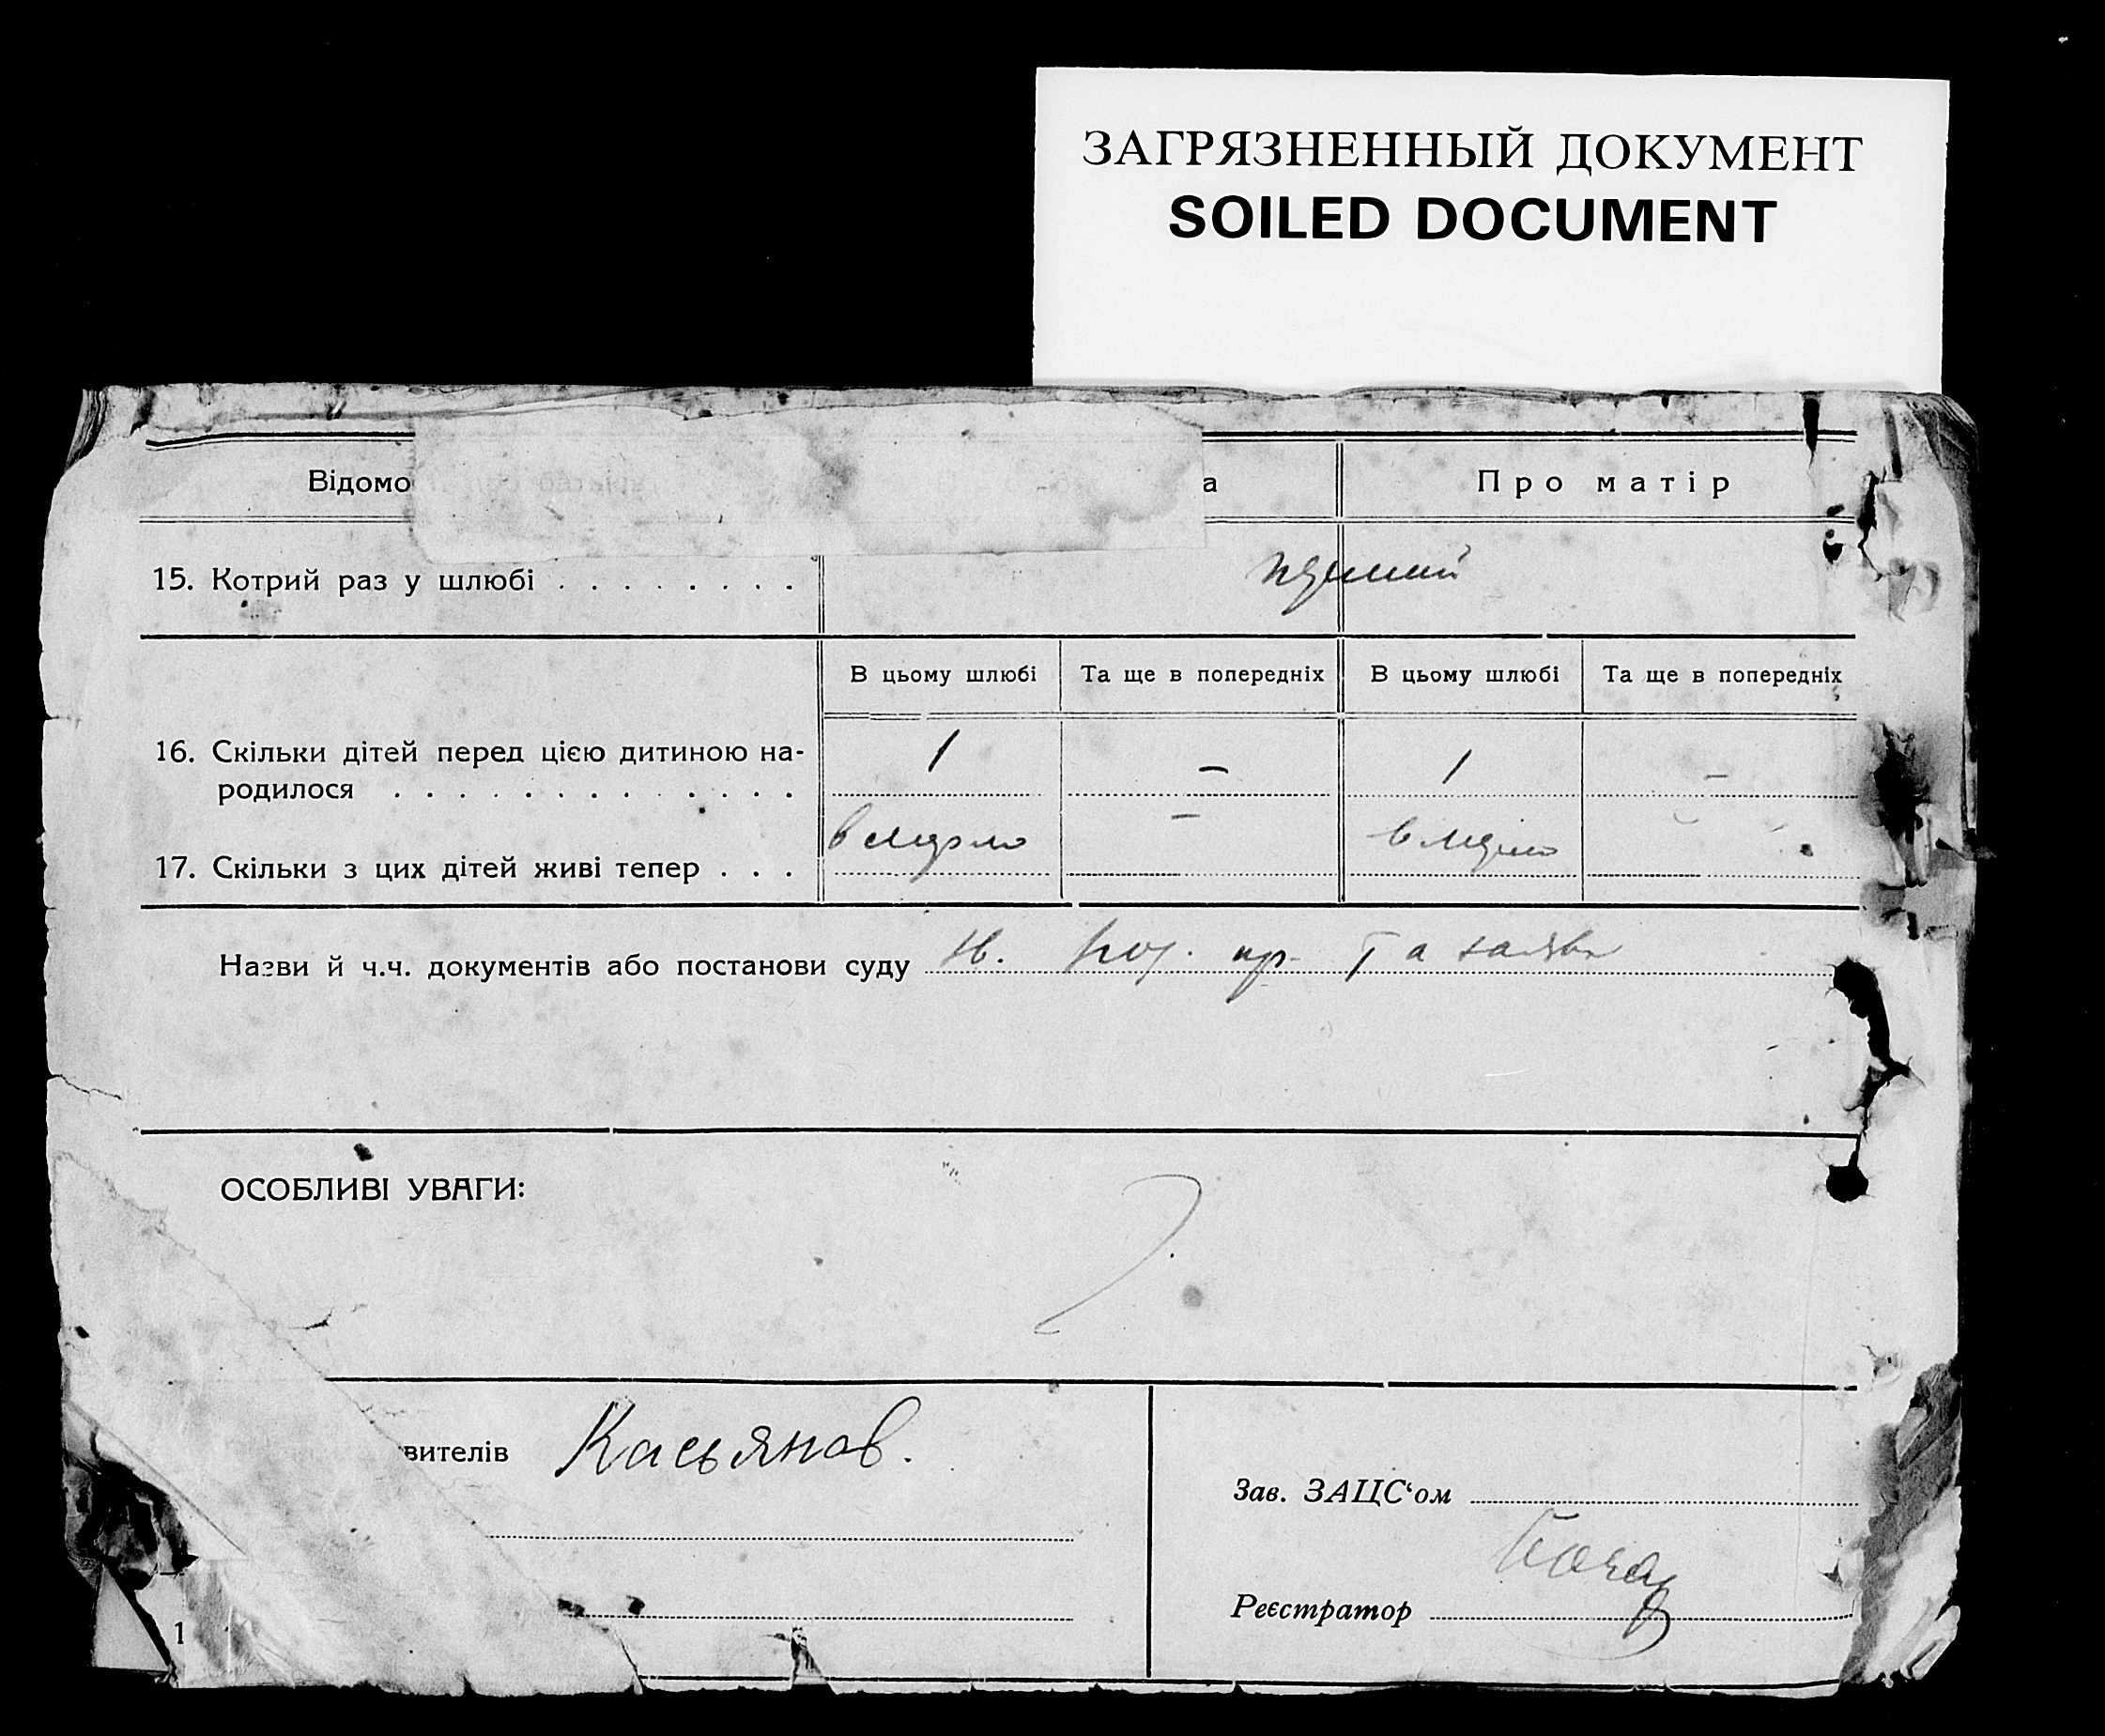 ЗАГРЯЗНЕННЫЙ ДОКУМЕНТ
SOILED DOCUMENT
Відомо а Про матір
15. Котрий раз у шлюбі . . . . . . . .
В цьому шлюбі Та ще в попередніх В цьому шлюбі Та ще в попередніх
16. Скільки дітей перед цією дитиною на- 1 – 1 –
родилося . . . . . . . . . . . . .
17. Скільки з цих дітей живі тепер . . . –
Назви й ч.ч. документів або постанови суду та заява
ОСОБЛИВІ УВАГИ:
вителів Касьянов.
Зав. ЗАЦС‘ом
Реєстратор
1